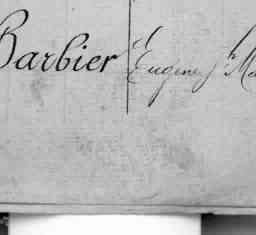 Barbier Eugene J.h Ma